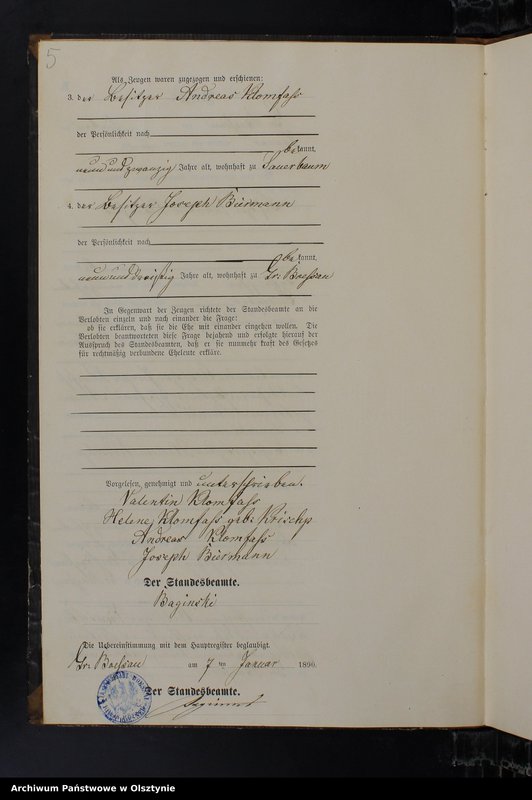 5
Als Zeugen waren zugezogen und erschienen:
3. der Besitzer Andreas Klomfass
der Persönlichkeit nach
bekannt,
neunundzwanzig Jahre alt, wohnhaft zu Sauerbaum
4. der Besitzer Joseph Biermann
der Persönlichkeit nach
bekannt,
neununddreißig Jahre alt, wohnhaft zu Gr. Boessau
In Gegenwart der Zeugen richtete der Standesbeamte an die
Verlobten einzeln und nach einander die Frage:
ob sie erklären, daß sie die Ehe mit einander eingehen wollen. Die
Verlobten beantworteten diese Frage bejahend und erfolgte hierauf der
Ausspruch des Standesbeamten, daß er sie nunmehr kraft des Gesetzes
für rechtmäßig verbundene Eheleute erkläre.
Vorgelesen, genehmigt und unterschrieben.
Valentin Klomfass
Helene Klomfass geb. Krischp
Andreas Klomfass
Joseph Biermann
Der Standesbeamte.
Baginski
Die Uebereinstimmung mit dem Hauptregister beglaubigt.
Gr. Boessau am 7 ten Januar 1890.
Der Standesbeamte.
Archiwum Państwowe w Olsztynie